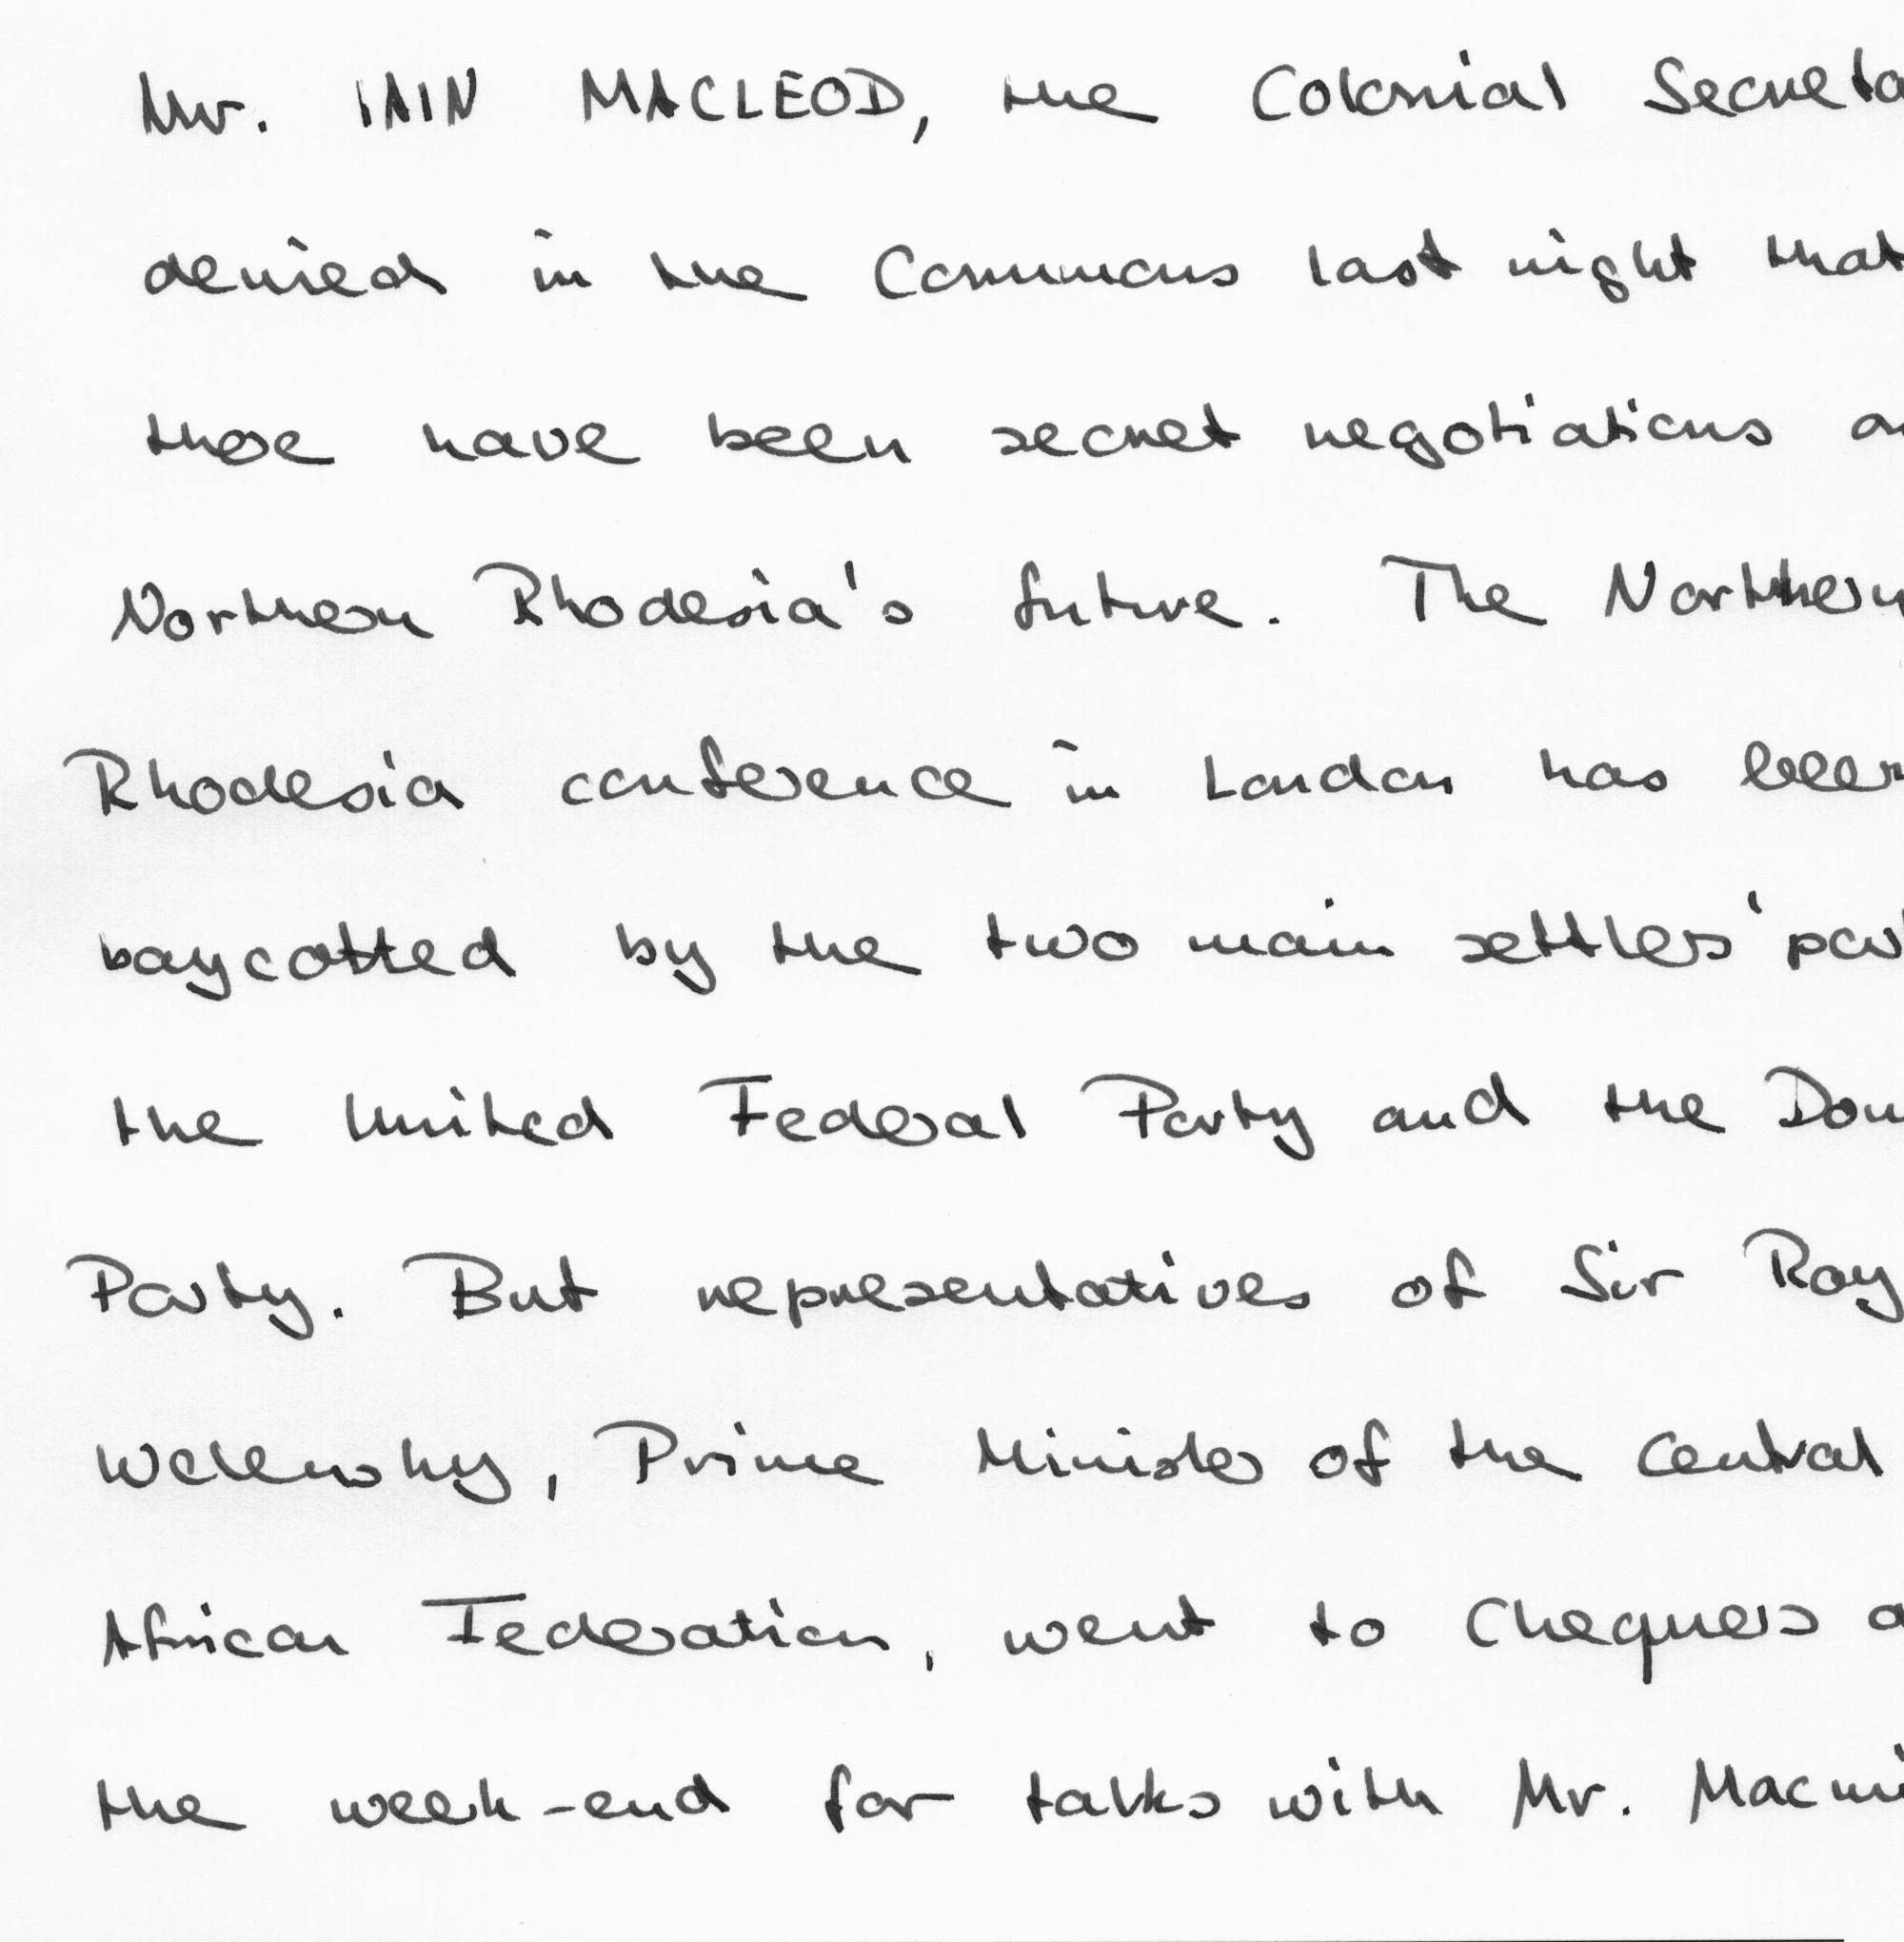 Mr. IAIN MACLEOD, the Colonial Secreta
denied in the Commons last night that
there have been secret negotiations on
Northern Rhodesia's future. The Northern
Rhodesia conference in London has been
boycotted by the two main settlers' par
the United Federal Party and the Dom
Party. But representatives of Sir Roy
Welensky, Prime Minister of the Central
African Federation, went to Chequers a
the week-end for talks with Mr. Macmi